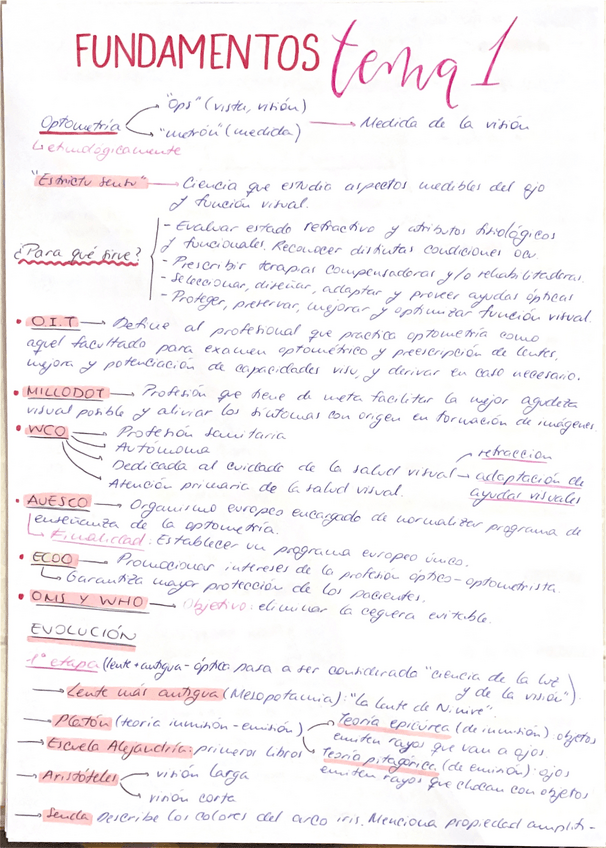 FUNDAMENTOS tema 1
Optometría "ops" (vista, visión)
"metrón" (medida) → Medida de la visión
↳ etimológicamente
"Estrictu sensu" → Ciencia que estudia aspectos medibles del ojo
y función visual.
¿Para qué sirve?
- Evaluar estado refractivo y atributos fisiológicos
y funcionales. Reconocer distintas condiciones ocu.
- Prescribir terapias compensadoras y/o rehabilitadoras.
- Seleccionar, diseñar, adaptar y proveer ayudas ópticas
- Proteger, preservar, mejorar y optimizar función visual.
• O.I.T → Define al profesional que practica optometría como
aquel facultado para examen optométrico y preescripción de lentes,
mejora y potenciación de capacidades visu, y derivar en caso necesario.
• MILLODOT → Profesión que tiene de meta facilitar la mejor agudeza
visual posible y aliviar los síntomas con origen en formación de imágenes
• WCO → Profesión sanitaria
Autónoma
Dedicada al cuidado de la salud visual → refracción
adaptación de
ayudas visuales
Atención primaria de la salud visual.
• AUESCO → Organismo europeo encargado de normalizar programa de
enseñanza de la optometría.
Finalidad: Establecer un programa europeo único.
• ECOO → Promocionar intereses de la profesión óptico-optometrista.
↳ Garantiza mayor protección de los pacientes.
• OMS Y WHO → Objetivo: eliminar la ceguera evitable.
EVOLUCIÓN
1ª etapa (lente + antigua - óptica pasa a ser considerado "ciencia de la luz
y de la visión").
→ Lente más antigua (Mesopotamia): "la lente de Nínive".
→ Platón (teoría inmisión-emisión) Teoría epicúrea (de inmisión) objetos
emiten rayos que van a ojos.
Teoría pitagórica (de emisión): ojos
emiten rayos que chocan con objetos
→ Escuela Alejandría: primeros libros
→ Aristóteles visión larga
visión corta
→ Describe los colores del arco iris. Menciona propiedad amplifi-